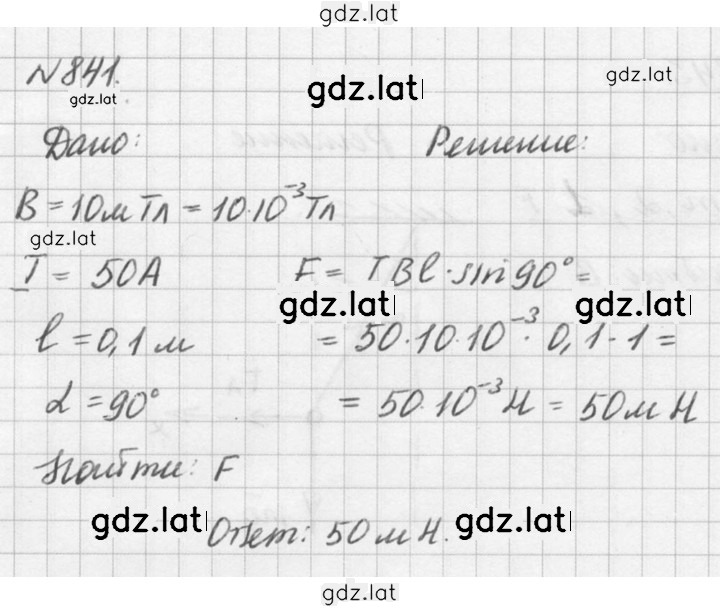 gdz.lat
N 841.
gdz.lat
gdz.lat
gdz.lat
Дано:
Решение:
B = 10 м Тл = 10·10⁻³ Тл
gdz.lat
I = 50 А
F = I B l · sin 90° =
gdz.lat
gdz.lat
l = 0,1 м
= 50·10·10⁻³ · 0,1 · 1 =
α = 90°
= 50·10⁻³ Н = 50 м Н
Найти: F
gdz.lat
gdz.lat
Ответ: 50 м Н.
gdz.lat